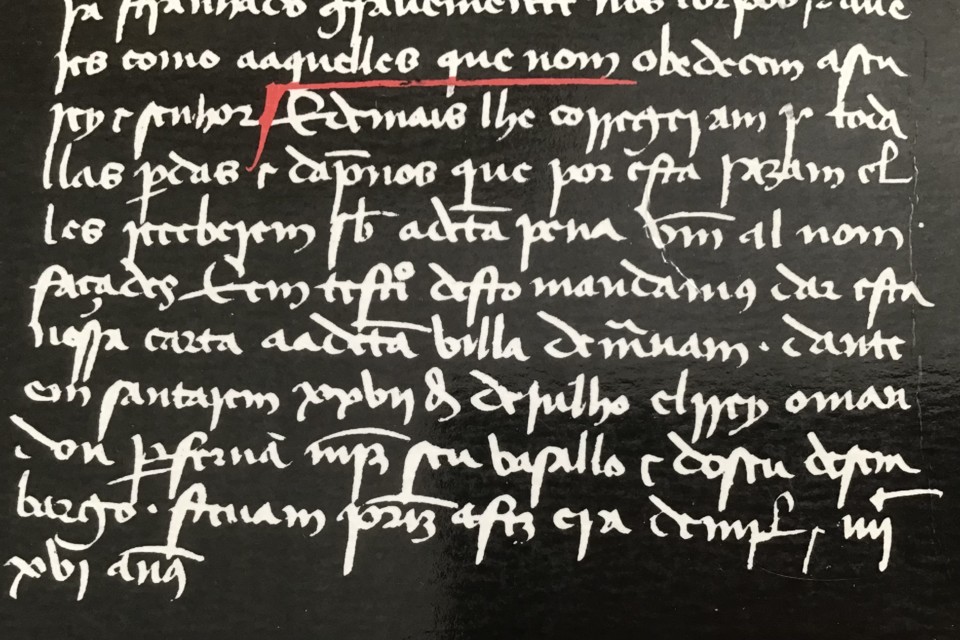 ja stranhado gravemente nos corpos p. que
les como aaquelles que nom obedecem a seu
rey e senhor E demais lhe corregeram p. toda
llas pdas e dapnos que por esta rrazam el
les receberem sb adcta pena hūu al nom
façades E em testo desto mandamos dar esta
nossa carta aadcta billa dem̃uam. dante
em santarem xxbij ds dejulho elrrey oman
don p fernā mz seu basallo e doseu desem
bargo. steuam pirz afez era demjl e iiij
xbj anos